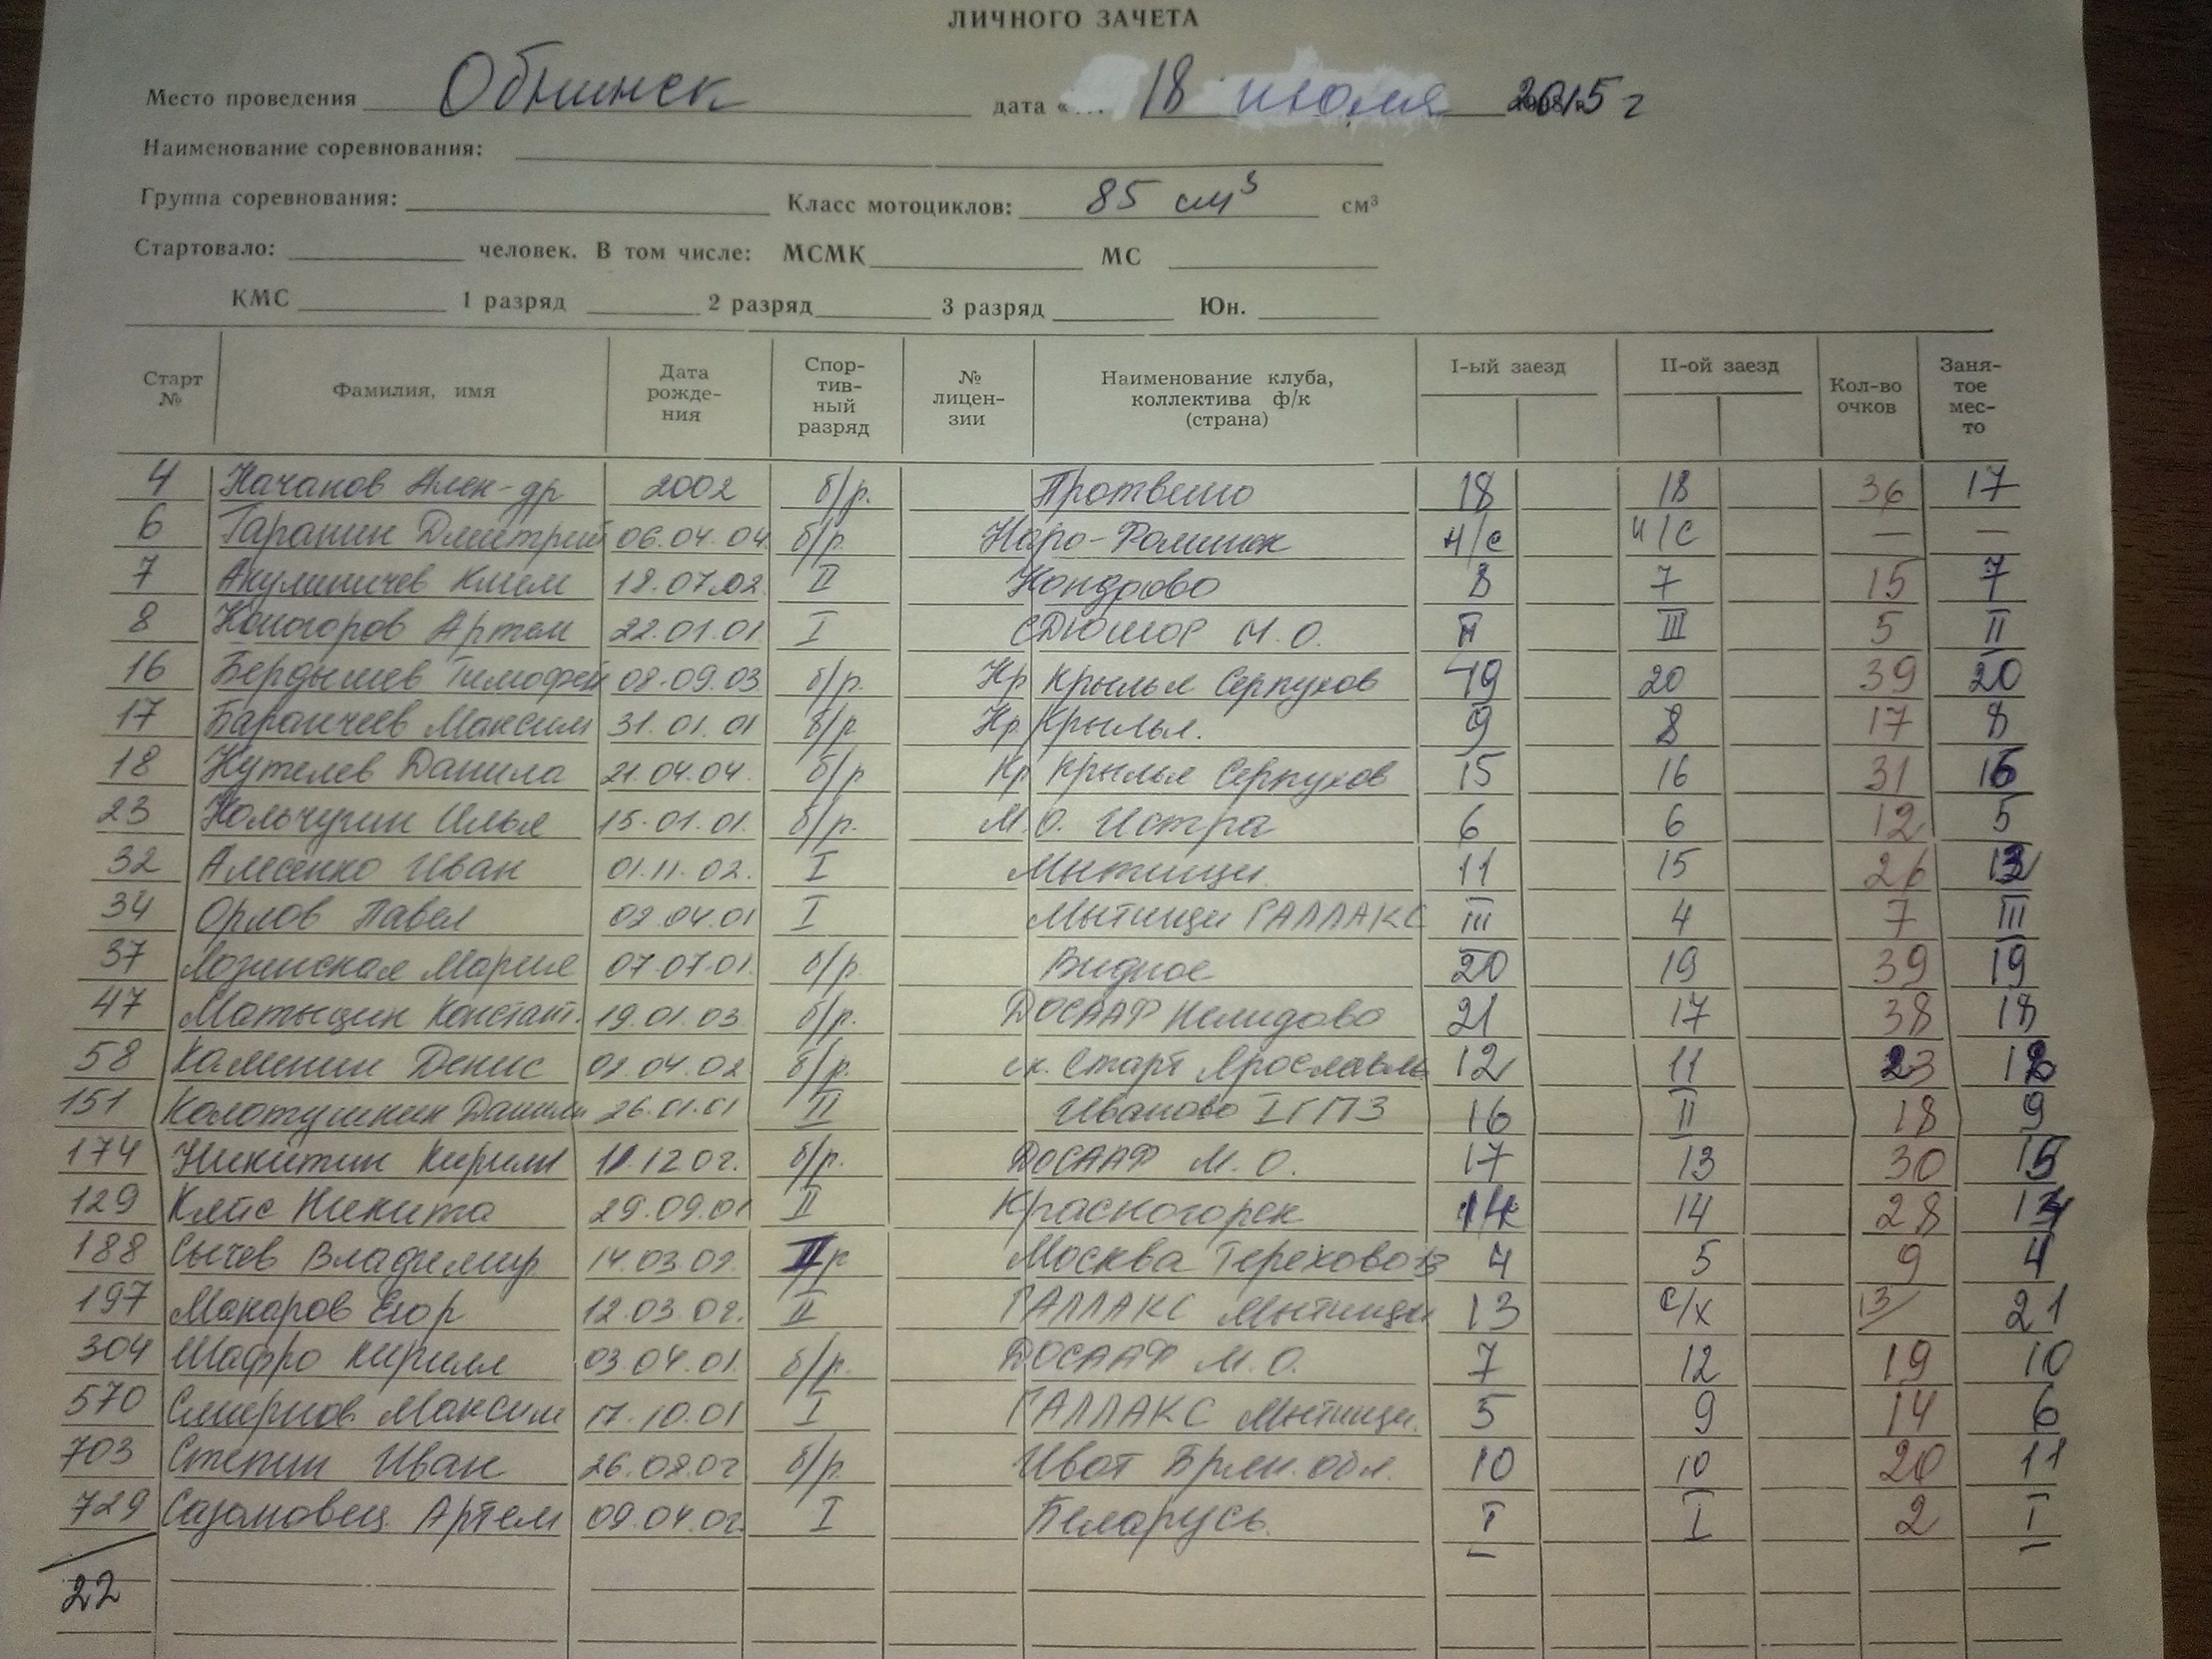 ЛИЧНОГО ЗАЧЕТА
Место проведения Обнинск дата « 18 июля 2015 г
Наименование соревнования:
Группа соревнования: Класс мотоциклов: 85 см³ см³
Стартовало: человек. В том числе: МСМК МС
КМС 1 разряд 2 разряд 3 разряд Юн.
Старт № Фамилия, имя Дата рожде-ния Спор-тив-ный разряд № лицен-зии Наименование клуба, коллектива ф/к (страна) I-ый заезд II-ой заезд Кол-во очков Заня-тое мес-то
4 Качанов Алек-др 2002 б/р. Протвино 18 18 36 17
6 Гаранин Дмитрий 06.04.04 б/р. Наро-Фоминск н/с н/с — —
7 Акулиничев Клим 18.07.02 II Кондрово 8 7 15 7
8 Коногоров Артем 22.01.01 I СДЮШОР М.О. II III 5 II
16 Бердышев Тимофей 08.09.03 б/р. Кр Крылья Серпухов 19 20 39 20
17 Баранчеев Максим 31.01.01 б/р Кр. Крылья. 9 8 17 8
18 Кутелев Данила 21.04.04. б/р. Кр Крылья Серпухов 15 16 31 16
23 Кольчугин Илья 15.01.01. б/р. М.О. Истра 6 6 12 5
32 Алесенко Иван 01.11.02. I Мытищи. 11 15 26
34 Орлов Павел 02.04.01 I Мытищи ГАЛЛАКС III 4 7 III
37 Лозинская Мария 07.07.01. б/р. Видное 20 19 39 19
47 Матыцин Констант. 19.01.03 б/р. ДОСААФ Нелидово 21 17 38 18
58 Калинин Денис 02.04.02 б/р. ск. Старт Ярославль 12 11 23 12
151 Колотушкин Данила 26.01.01 II Иваново 1ГПЗ 16 II 18 9
174 Никитин Кирилл 11.12.02. б/р. ДОСААФ М.О. 17 13 30 15
129 Клейс Никита 29.09.01 II Красногорск 14 14 28 14
188 Сычев Владимир 14.03.02. II Москва Терехово 4 5 9 4
197 Макаров Егор 12.03.02. II ГАЛЛАКС Мытищи 13 с/х 13/ 21
304 Шафро Кирилл 03.04.01. б/р. ДОСААФ М.О. 7 12 19 10
570 Смирнов Максим 17.10.01 I ГАЛЛАКС Мытищи. 5 9 14 6
703 Степин Иван 26.02.02 б/р. Ивот Брян.обл. 10 10 20 11
729 Сазановец Артем 09.04.02. I Беларусь. I I 2 I
22